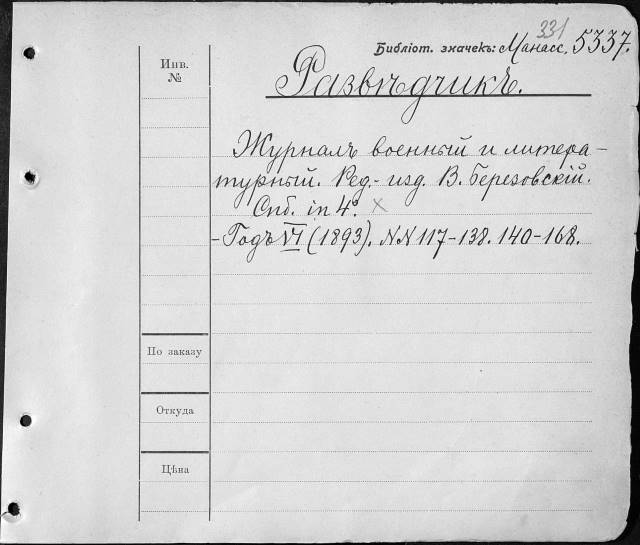 331
Библіот. значекъ: Манасс. 5337.
Инв.
№
Развѣдчикъ.
Журналъ военный и литера-
турный. Ред.-изд. В. Березовскій.
Спб. in 4°. ×
- Годъ VI (1893). NN 117-138. 140-168.
По заказу
Откуда
Цѣна